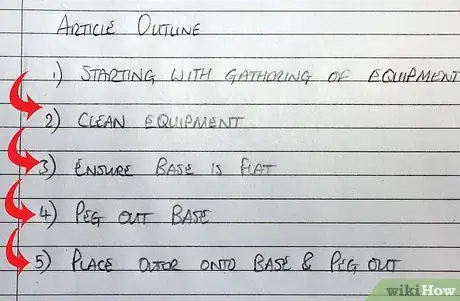 Article Outline
1) Starting with gathoring of equipment
2) Clean equipment
3) Ensure base is flat
4) Peg out base
5) Place outor onto base & peg out
wikiHow